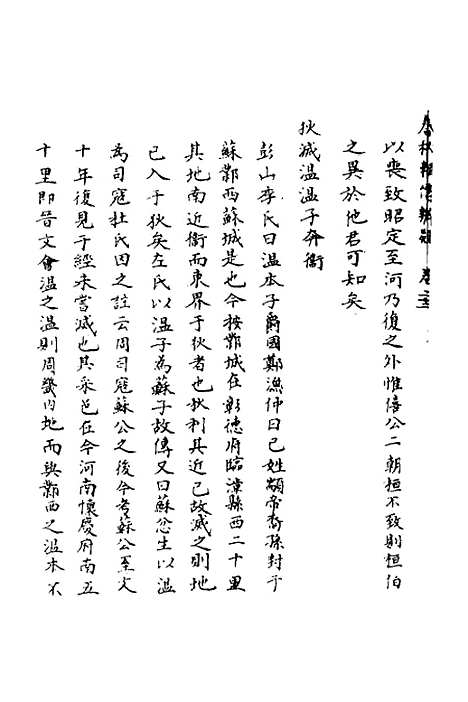 春秋輯傳辨疑 卷二十三
以喪致昭定至河乃復之外惟僖公二朝桓不致則桓伯
之異於他君可知矣
狄滅溫溫子奔衛
彭山李氏曰溫本子爵國鄭漁仲曰己姓顓帝裔孫封于
蘇鄴西蘇城是也今按鄴城在彰德府臨漳縣西二十里
其地南近衛而東界于狄者也狄利其近己故滅之則地
已入于狄矣左氏以溫子為蘇子故傳又曰蘇忿生以溫
為司寇杜氏因之註云周司寇蘇公之後今考蘇公至文
十年復見于經未嘗滅也其采邑在今河南懷慶府南五
十里即晉文會溫之溫則周畿內地而與鄴西之溫本不